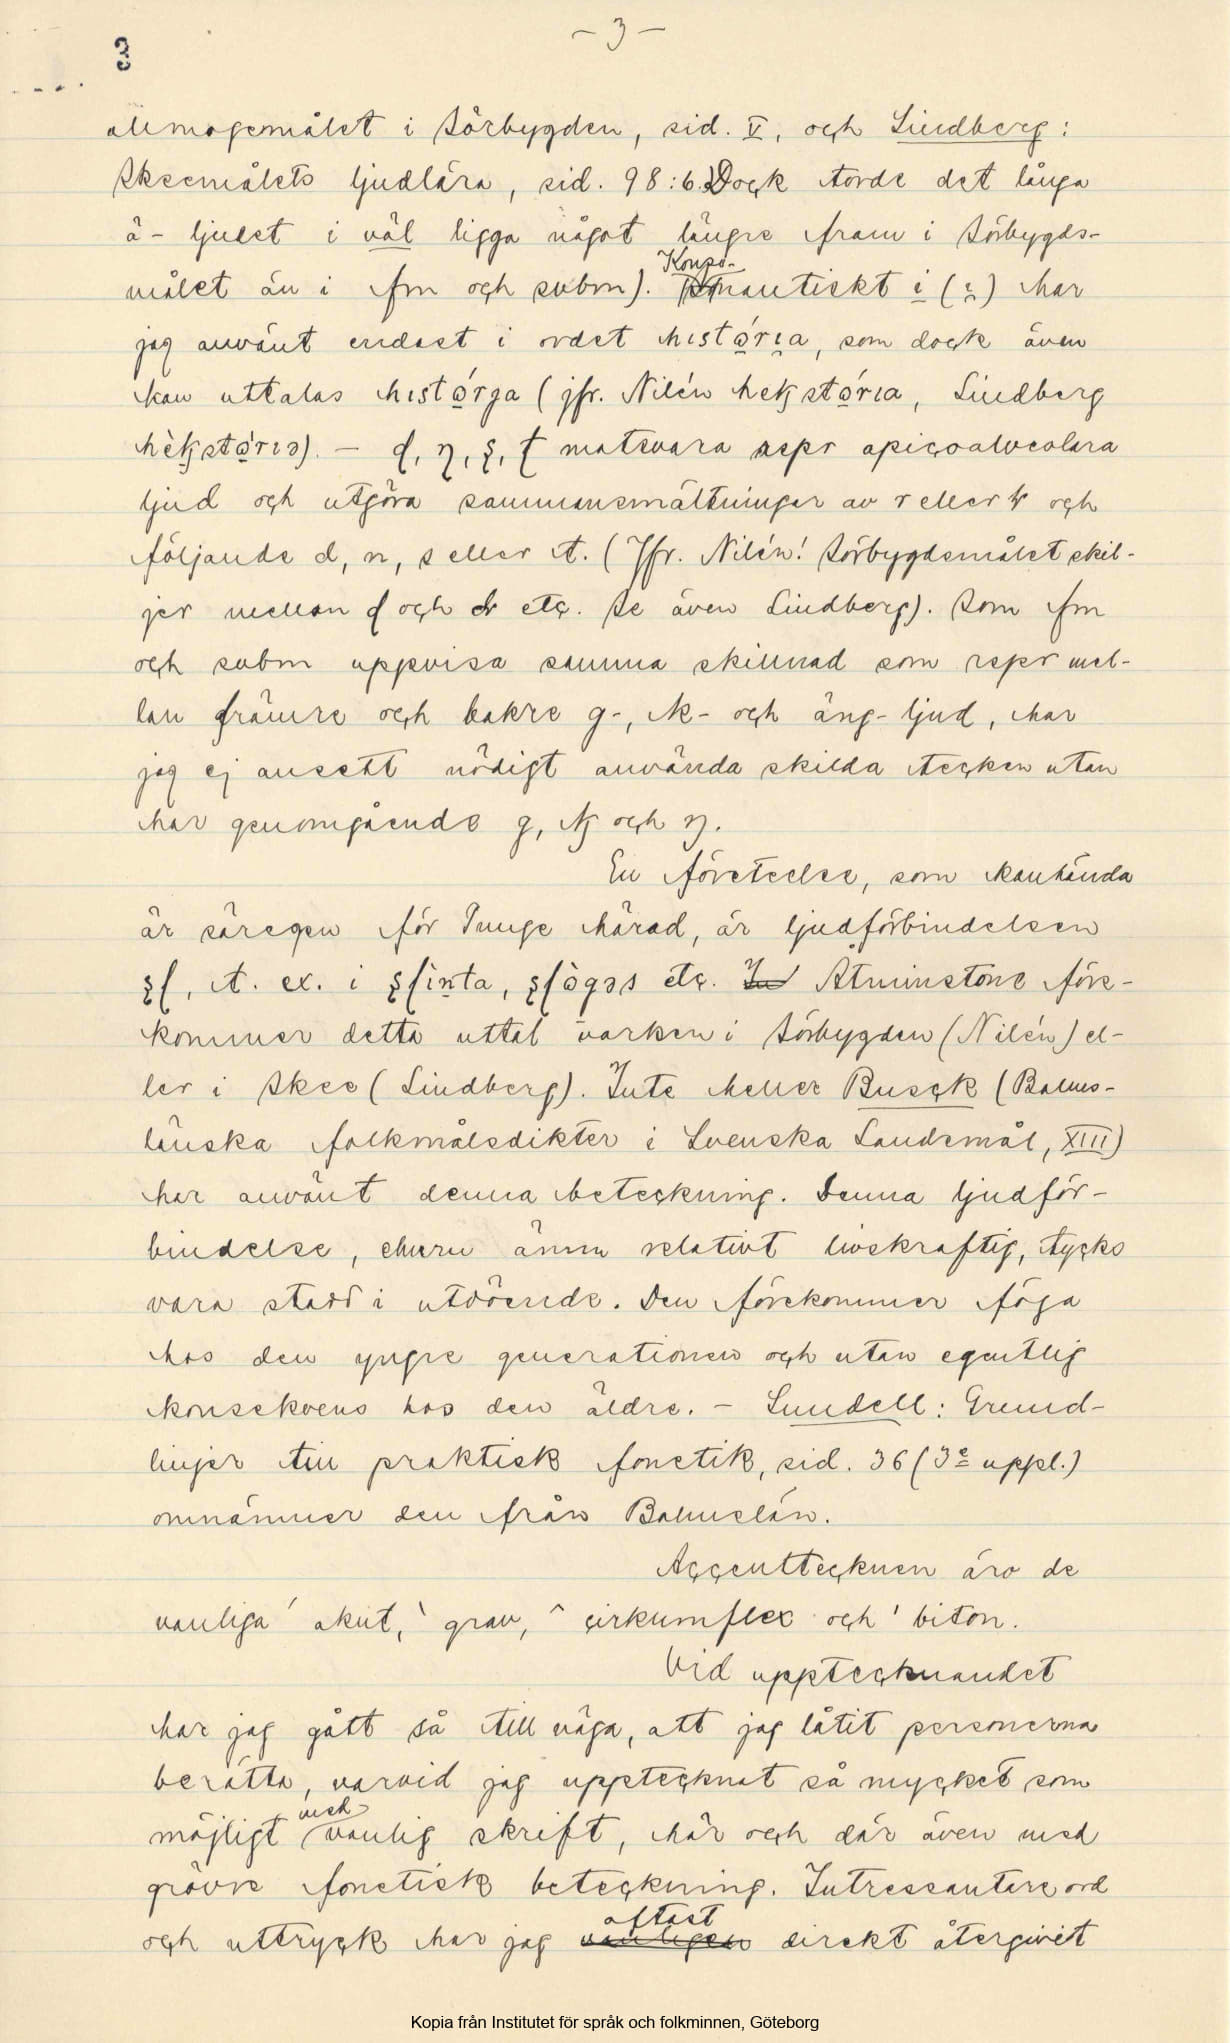 – 3 –
3
allmogemålet i Sörbygden, sid. V, och Lindberg:
Skeemålets ljudlära, sid. 98:6.) Dock torde det långa
ä- ljudet i väl ligga något längre fram i Sörbygds-
målet än i fm och subm). Konso-
nantiskt i (i̯) har
jag använt endast i ordet histǫ́rı̯a, som dock även
kan uttalas histǫ́rja (jfr. Nilén hekstǫ́rıa, Lindberg
hèkstǫ́rıə). – ɖ, ɳ, ʂ, ʈ motsvara repr apicoalveolara
ljud och utgöra sammansmältningar av r eller r och
följande d, n, s eller t. (Jfr. Nilén! Sörbygdsmålet skil-
jer mellan ɖ och dr etc. Se även Lindberg). Som fm
och subm uppvisa samma skillnad som repr mel-
lan främre och bakre g-, k- och äng- ljud, har
jag ej ansett nödigt använda skilda tecken utan
har genomgående g, k och ŋ.
En företeelse, som kanhända
är säregen för Tunge härad, är ljudförbindelsen
ʂʃ, t. ex. i ʂʃinta, ʂʃògəs etc. Åtminstone före-
kommer detta uttal varken i Sörbygden (Nilén) el-
ler i Skee (Lindberg). Inte heller Busck (Bohus-
länska folkmålsdikter i Svenska Landsmål, XIII)
har använt denna beteckning. Denna ljudför-
bindelse, ehuru ännu relativt livskraftig, tycks
vara stadd i utdöende. Den förekommer föga
hos den yngre generationen och utan egentlig
konsekvens hos den äldre. – Lundell: Grund-
linjer till praktisk fonetik, sid. 36 (3e uppl.)
omnämner den från Bohuslän.
Accenttecknen äro de
vanliga ´ akut, ` grav, ^ cirkumflex och ' biton.
Vid upptecknandet
har jag gått så till väga, att jag låtit personerna
berätta, varvid jag upptecknat så mycket som
möjligt med vanlig skrift, här och där även med
grövre fonetisk beteckning. Intressantare ord
och uttryck har jag vanligen oftast direkt återgivit
Kopia från Institutet för språk och folkminnen, Göteborg